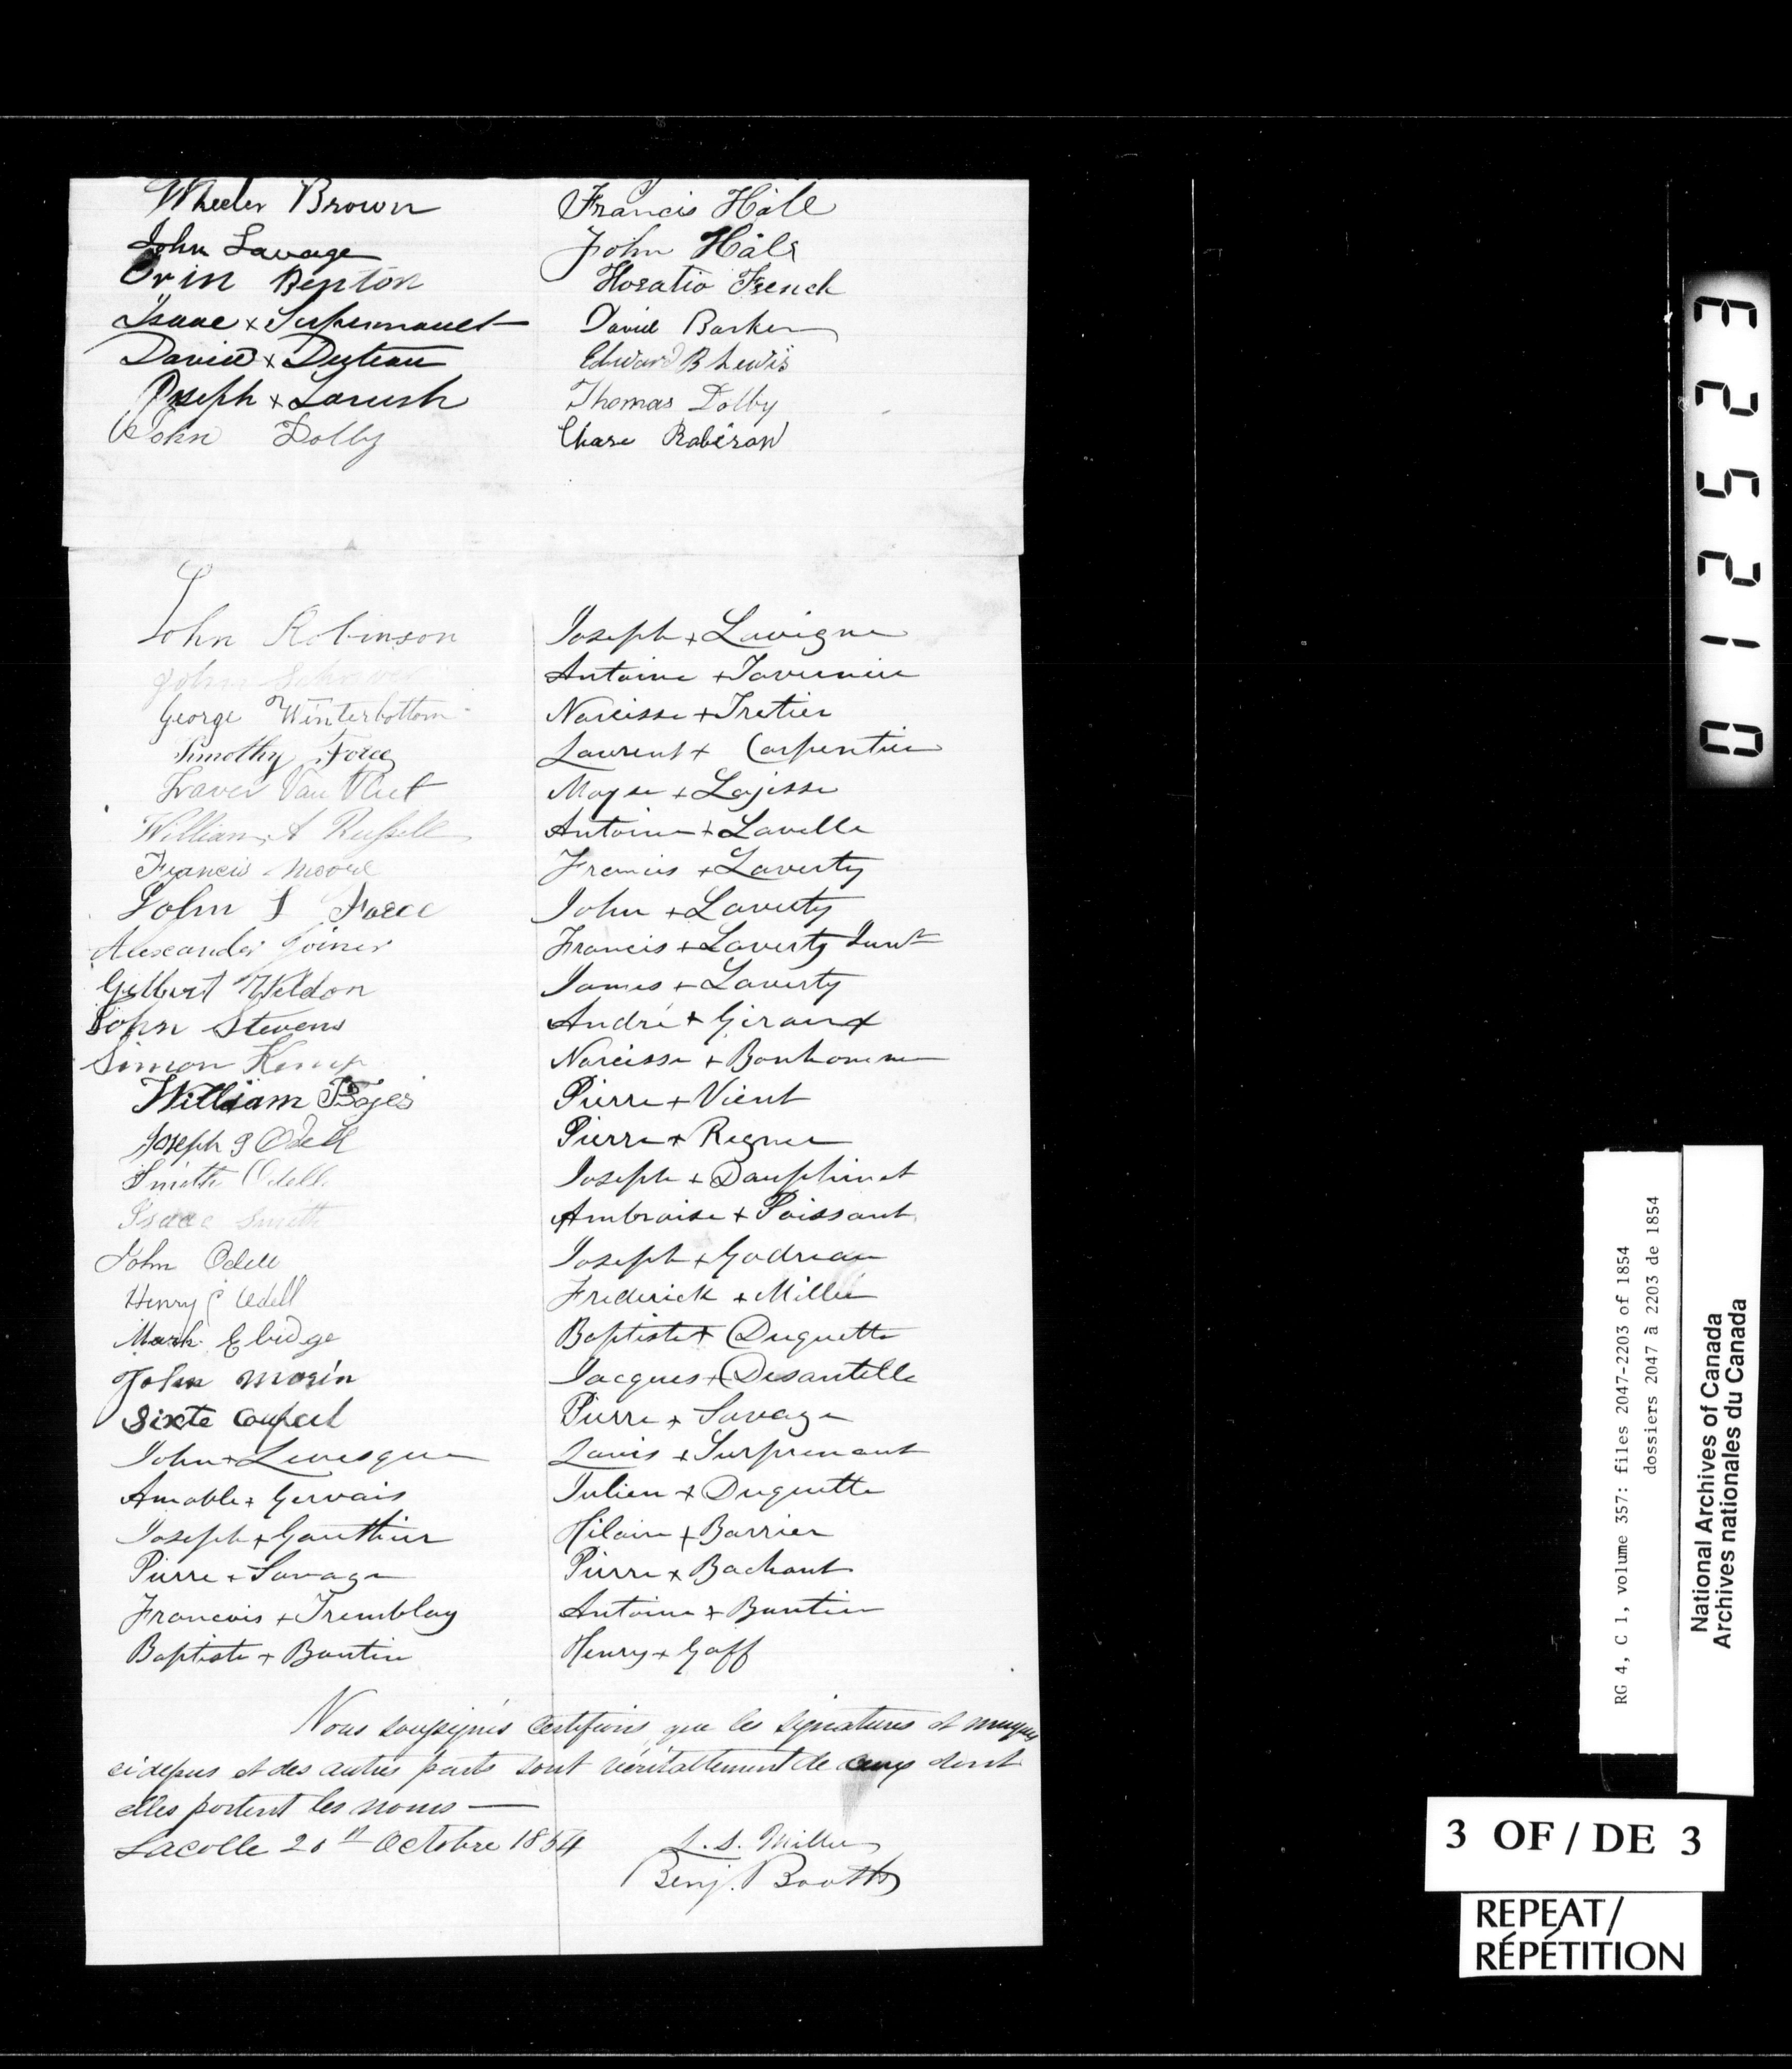 Wheeler Brown
John Savage
Orin Benton
Isaac x Surprenault
David x Duteau
Joseph x Larush
John Dolby
Francis Hall
John Hall
Horatio French
David Barker
Edward B Lewis
Thomas Dolby
Chase Robinson
John Robinson
John
George Winterbottom
Timothy Force
Traver Van Vliet
William A Russell
Francis Moore
John J Force
Alexander Joiner
Gilbert Weldon
John Stevens
Simeon Kemp
William Bojes
Joseph J Odell
Smith Odell
Isaac Smith
John Odell
Henry C Odell
Mark Elridge
John Morin
Sixte Coupal
John + Levesque
Amable + Gervais
Joseph + Gauthier
Pierre + Savage
Francois + Tremblay
Baptiste + Bontin
Joseph + Lavigne
Antoine + Tavernier
Narcisse + Tretier
Laurent + Carpentier
Moyse + Lajisse
Antoine + Lavelle
Francis + Laverty
John + Laverty
Francis + Laverty Junr
James + Laverty
André + Giroux
Narcisse + Bonhomme
Pierre + Vient
Pierre + Regner
Joseph + Dauphinet
Ambroise + Poissant
Joseph + Godreau
Frederick + Miller
Baptiste + Duquette
Jacques + Desautelle
Pierre + Savage
Louis + Surprenant
Julien + Duquette
Hilaire + Barrier
Pierre + Bachant
Antoine + Bontin
Henry + Goff
Nous soussignés certifions que les signatures et marques
cidessus et des autres parts sont véritablement de ceux dont
elles portent les noms —
Lacolle 20 Octobre 1854
L. S. Miller
Benj. Booth
32510
RG 4, C 1, volume 357: files 2047-2203 of 1854
dossiers 2047 à 2203 de 1854
National Archives of Canada
Archives nationales du Canada
3 OF / DE 3
REPEAT/
RÉPÉTITION